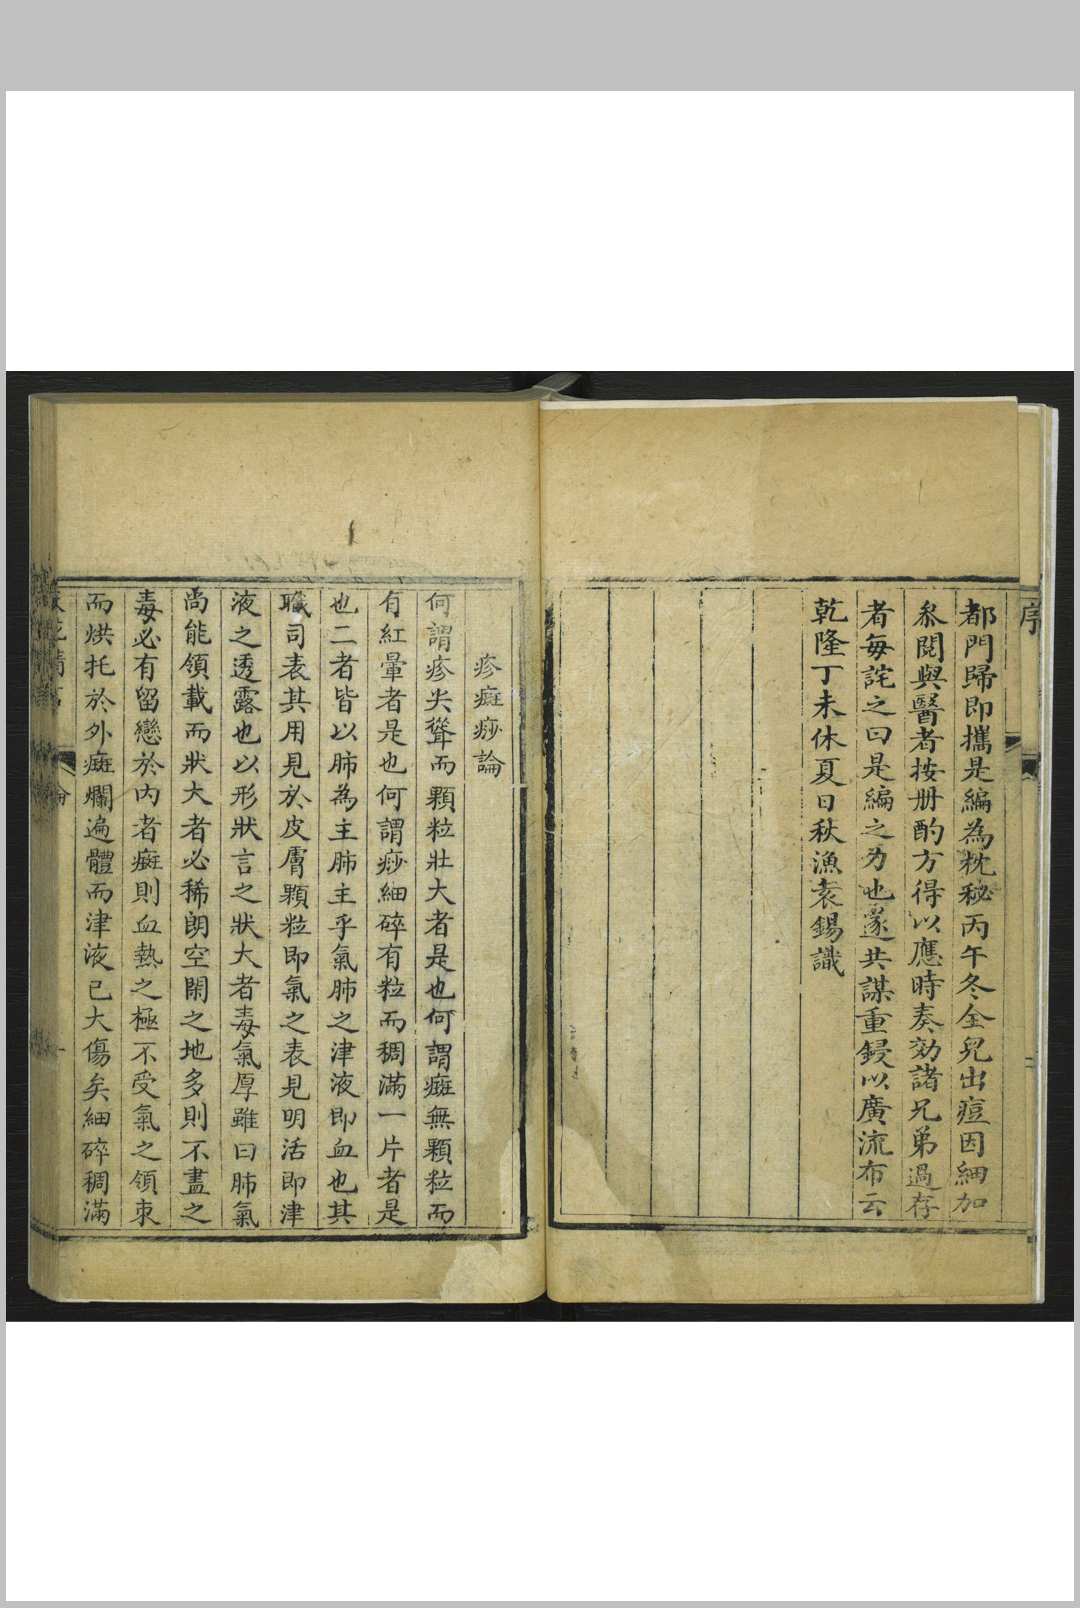 序
都門歸即攜是編為枕秘丙午冬全兒出痘因細加
叅閱與醫者按册酌方得以應時奏効諸兄弟過存
者每詫之曰是編之力也遂共謀重鋟以廣流布云
乾隆丁未休夏日秋漁袁錫識
疹癍痧論
何謂疹尖聳而顆粒壯大者是也何謂癍無顆粒而
有紅暈者是也何謂痧細碎有粒而稠滿一片者是
也二者皆以肺為主肺主乎氣肺之津液即血也其
職司表其用見於皮膚顆粒即氣之表見明活即津
液之透露也以形狀言之狀大者毒氣厚雖曰肺氣
尚能領載而狀大者必稀朗空閑之地多則不盡之
毒必有留戀於內者癍則血熱之極不受氣之領束
而烘托於外癍爛遍體而津液已大傷矣細碎稠滿